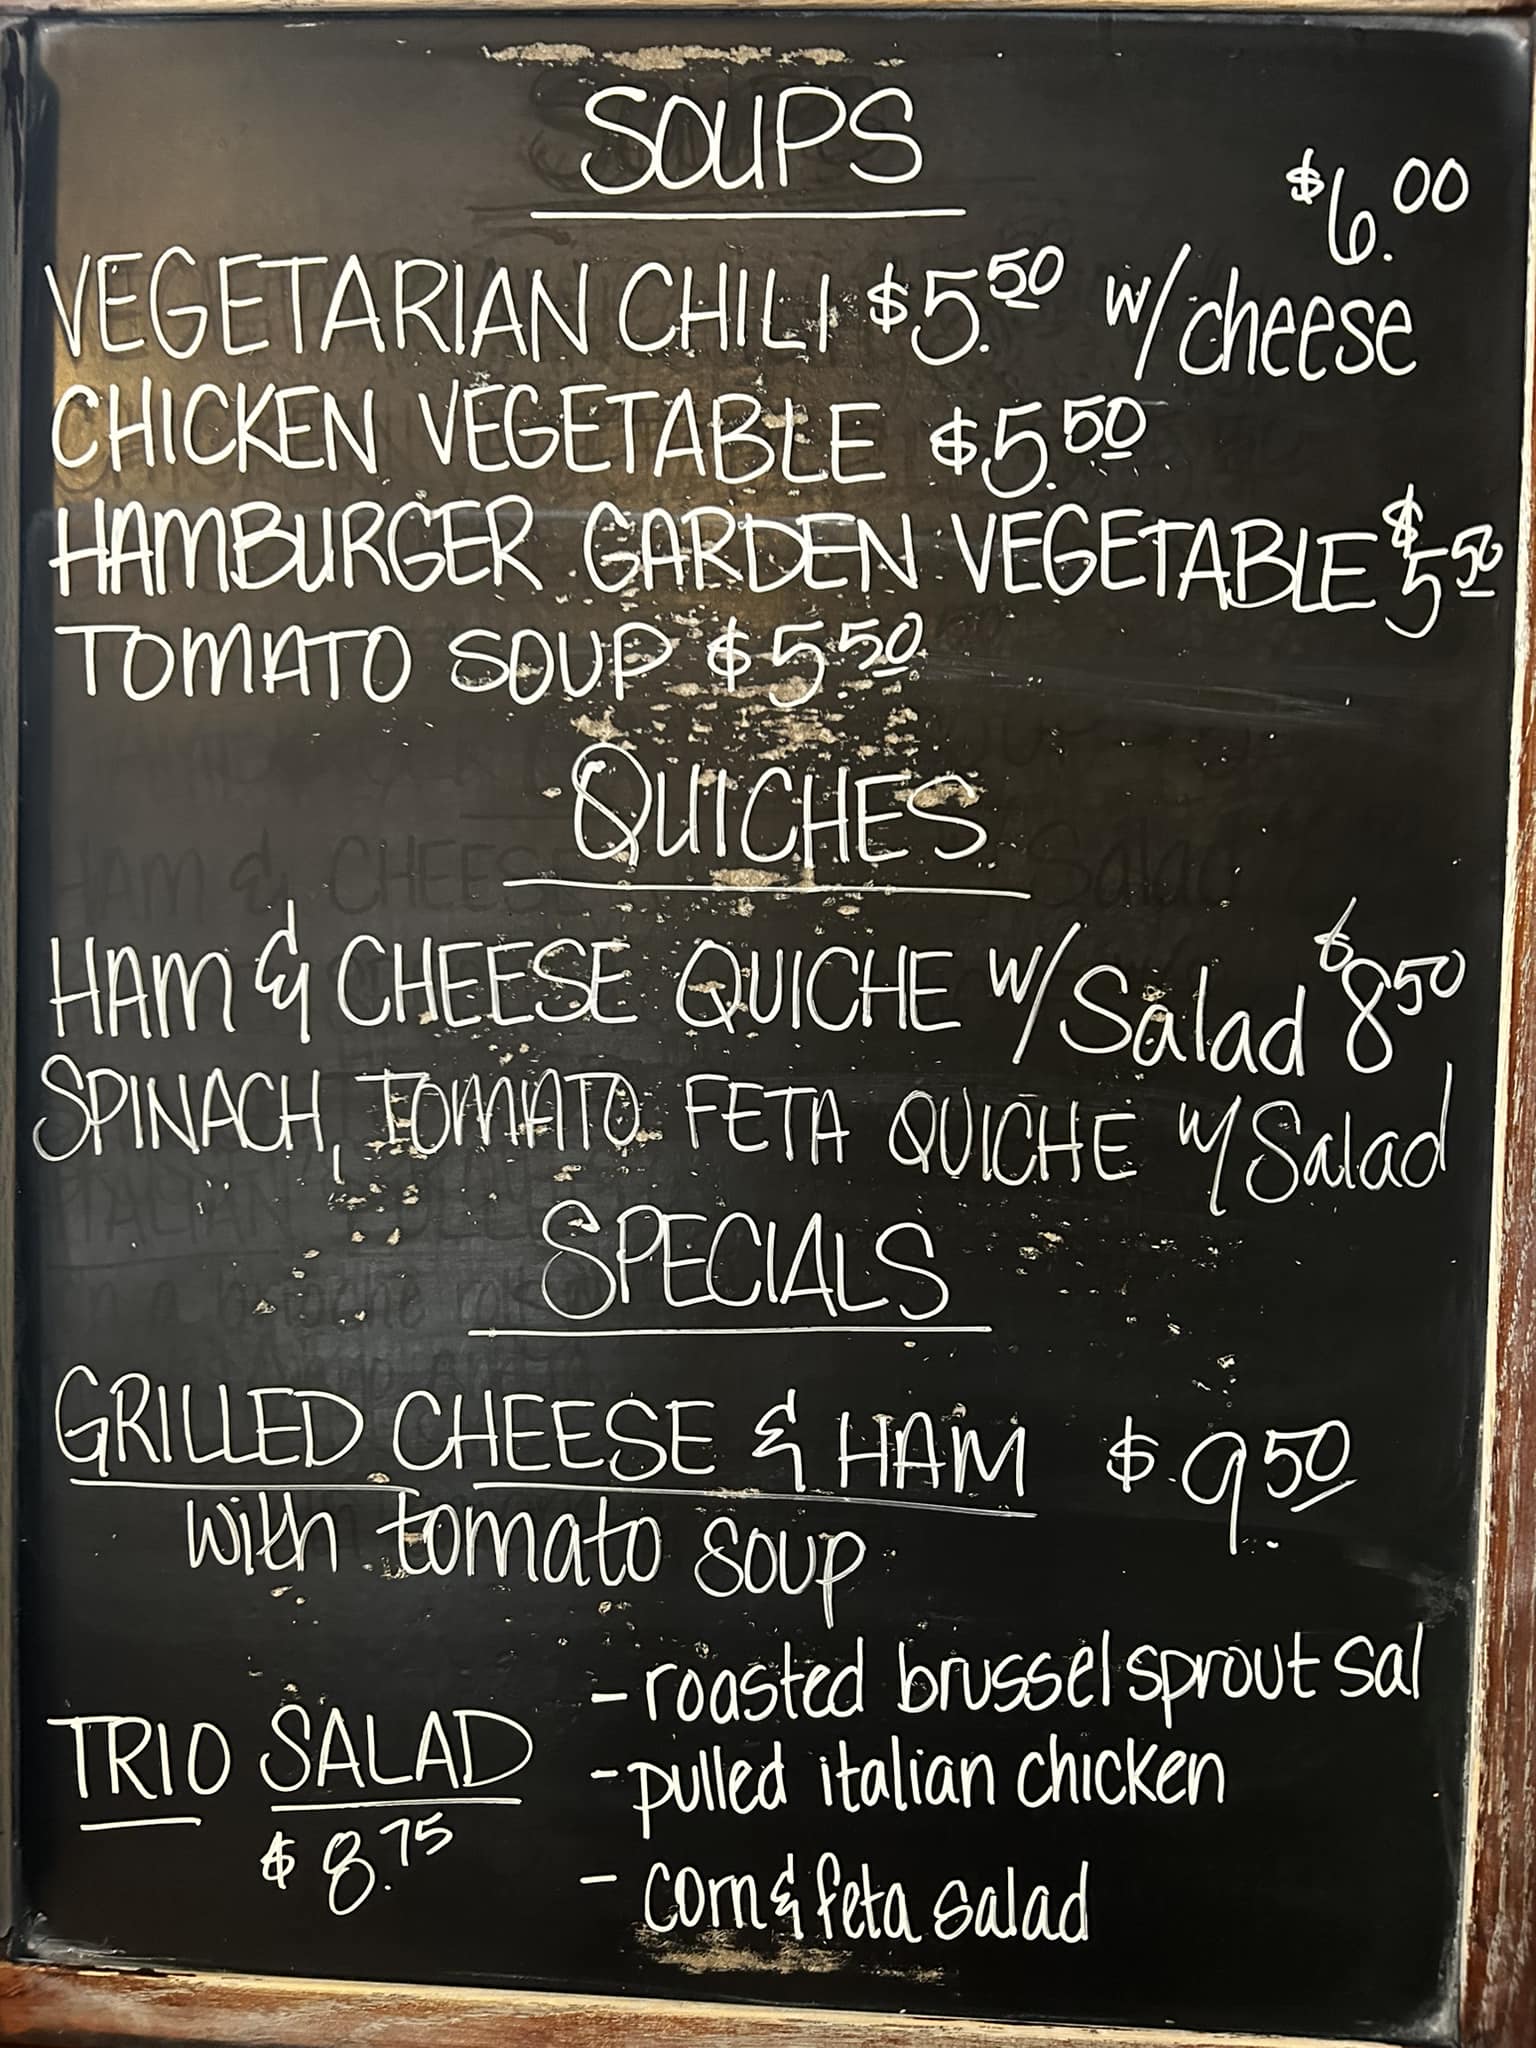 SOUPS
$6.00
VEGETARIAN CHILI $5.50 w/cheese
CHICKEN VEGETABLE $5.50
HAMBURGER GARDEN VEGETABLE $5.50
TOMATO SOUP $5.50
QUICHES
HAM & CHEESE QUICHE w/Salad $8.50
SPINACH, TOMATO FETA QUICHE w/Salad
SPECIALS
GRILLED CHEESE & HAM $9.50
with tomato soup
TRIO SALAD
$8.75
- roasted brussel sprout sal
- pulled italian chicken
- corn & feta salad